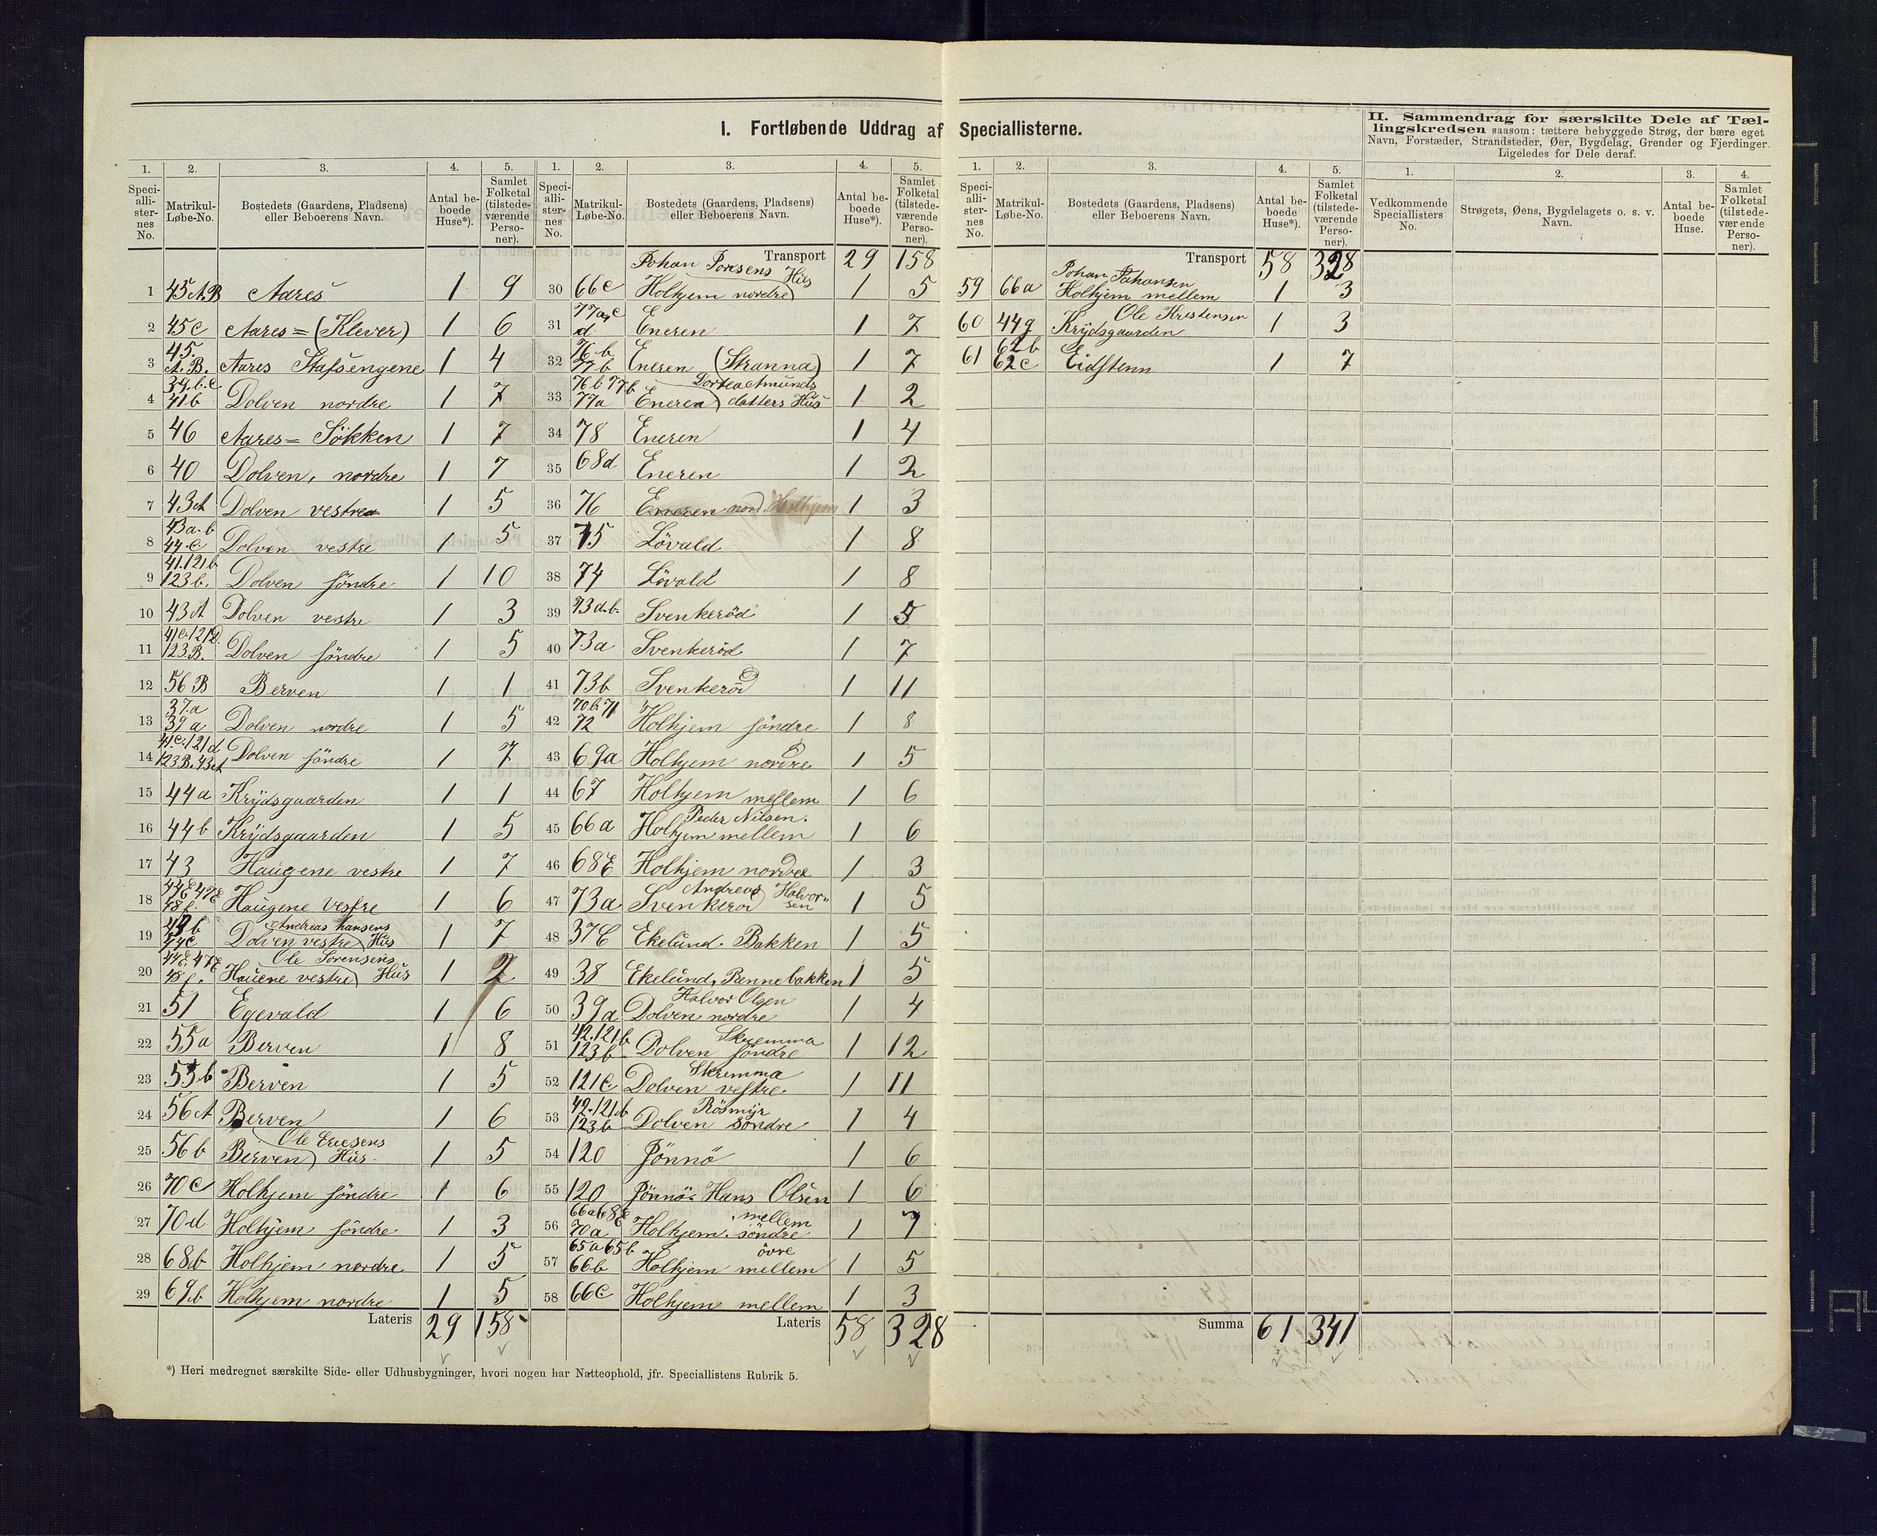 I. Fortløbende Uddrag af Speciallisterne.
II. Sammendrag for særskilte Dele af Tællingskredsen saasom: tættere bebyggede Strøg, der bære eget
Navn, Forstæder, Strandsteder, Øer, Bygdelag, Grender og Fjerdinger.
Ligeledes for Dele deraf.
1. 2. 3. 4. 5.
Speciallisternes No. Matrikul-Løbe-No. Bostedets (Gaardens, Pladsens) eller Beboerens Navn. Antal beboede Huse*). Samlet Folketal (tilstedeværende Personer).
1 45 A.B Aares 1 9
2 45c Aares = (Klever) 1 6
3 45. A.B. Aares Stafsengene 1 4
4 39.b.c 41b Dolven nordre 1 7
5 46 Aares = Søkken 1 7
6 40 Dolven, nordre 1 7
7 43A Dolven vestre 1 5
8 43a-b 44.c Dolven vestre 1 5
9 41.121b 123b. Dolven søndre 1 10
10 43A Dolven vestre 1 3
11 41c.121d 123.B. Dolven søndre 1 5
12 56B Berven 1 1
13 37.a 39a Dolven nordre 1 5
14 41.c.121d 123B.43A Dolven søndre 1 7
15 44a Krydsgaarden 1 1
16 44b Krydsgaarden 1 5
17 43 Haugene vestre 1 7
18 44E 47E 48f. Haugene Vestre 1 6
19 43b 44c Dolven vestre) Andreas Hansens Hus 1 7
20 44E.47E 48f. Hauene vestre) Ole Sørensens Hus 1 2
21 51 Egevald 1 6
22 55a Berven 1 8
23 55b Berven 1 5
24 56A Berven 1 6
25 56b Berven) Ole Ericsens Hus. 1 5
26 70c Holhjem søndre 1 6
27 70d Holhjem søndre 1 3
28 68b Holhjem nordre 1 5
29 69b Holhjem nordre 1 5
Lateris 29 158
1. 2. 3. 4. 5.
Speciallisternes No. Matrikul-Løbe-No. Bostedets (Gaardens, Pladsens) eller Beboerens Navn. Antal beboede Huse*). Samlet Folketal (tilstedeværende Personer).
Transport 29 158
30 66c Holhjem nordre) Johan Hus 1 5
31 77a,c d Eneren 1 7
32 76-b 77b Eneren (Stranna) 1 7
33 76b 77b 77a Eneren) Dortea Amunds datters Hus 1 2
34 78 Eneren 1 4
35 68d Eneren 1 2
36 76 Eneren nord. Holhjem 1 3
37 75 Løvald 1 8
38 74 Løvald 1 8
39 73d.b. Svenkerød 1 5
40 73a Svenkerød 1 7
41 73b Svenkerød 1 11
42 70b.71 72 Holhjem søndre 1 8
43 69a Holhjem nordre 1 5
44 67 Holhjem mellem 1 6
45 66a Holhjem mellem Peder Nilsen. 1 6
46 68E Holhjem nordre 1 3
47 73a Svenkerød Andreas Halvorsen 1 5
48 37C Ekelund. Bakken 1 5
49 38 Ekelund, Rennebakken 1 5
50 39a Dolven nordre Halvor Olsen 1 4
51 42.121b 123b. Dolven søndre Skremma 1 12
52 121C Dolven vestre. Skremma 1 11
53 42.121b 123b Dolven søndre Røsmyr 1 4
54 120 Jønnø 1 6
55 120 Jønnø = Hans Olsen 1 6
56 66a68E 70a Holhjem. mellem søndre 1 7
57 65a65b 66b Holhjem mellem øvre 1 5
58 66c Holhjem mellem 1 3
Lateris 58 328
*) Heri medregnet særskilte Side- eller Udhusbygninger, hvori nogen har Natteophold, jfr. Speciallistens Rubrik 5.
1. 2. 3. 4. 5.
Speciallisternes No. Matrikul-Løbe-No. Bostedets (Gaardens, Pladsens) eller Beboerens Navn. Antal beboede Huse*). Samlet Folketal (tilstedeværende Personer).
Transport 58 328
59 66a Johan Johansen Holhjem mellem 1 3
60 44g Krydsgaarden Ole Kristensen 1 3
61 62b 62c Eidstenn 1 7
Summa 61 341
1. 2. 3. 4.
Vedkommende Speciallisters No. Strøgets, Øens, Bygdelagets o. s. v. Navn. Antal beboede Huse. Samlet Folketal (tilstedeværende Personer).